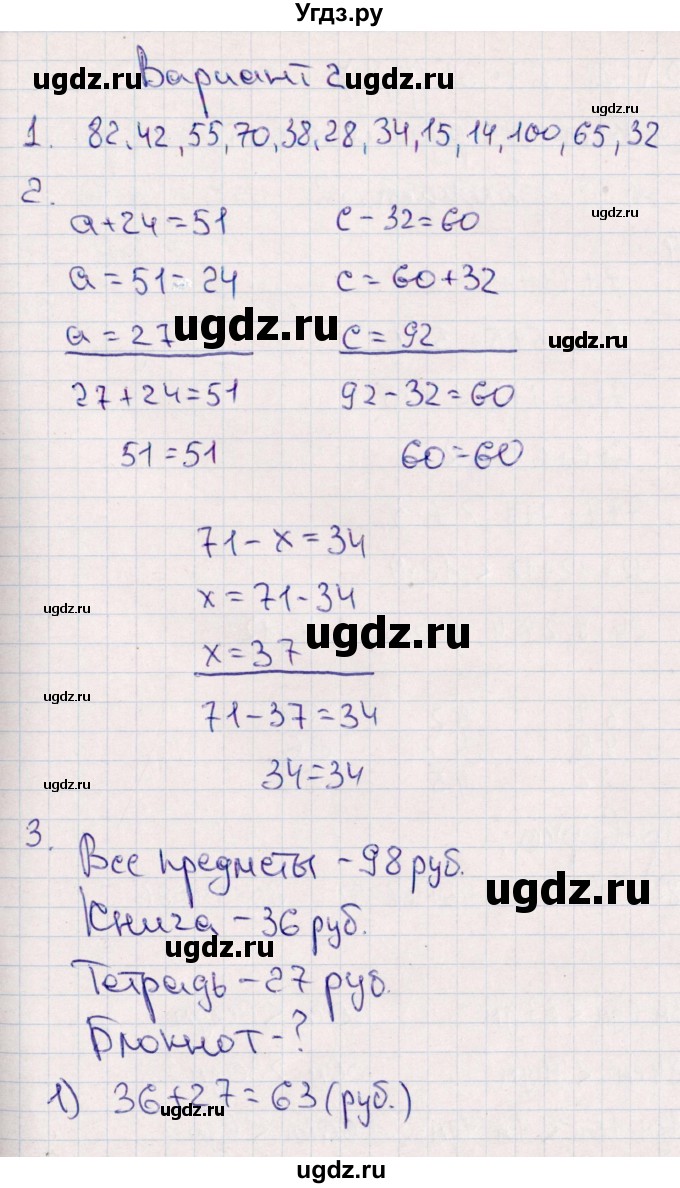 Угдз.ру
Вариант 2
1. 82, 42, 55, 70, 38, 28, 34, 15, 14, 100, 65, 32
2.
a + 24 = 51
c - 32 = 60
a = 51 = 24
c = 60 + 32
a = 27
c = 92
27 + 24 = 51
92 - 32 = 60
51 = 51
60 = 60
71 - x = 34
x = 71 - 34
x = 37
71 - 37 = 34
34 = 34
3.
Все предметы - 98 руб.
Книга - 36 руб.
Тетрадь - 27 руб.
Блокнот - ?
1) 36 + 27 = 63 (руб.)
ugdz.ru
ugdz.ru
ugdz.ru
ugdz.ru
ugdz.ru
ugdz.ru
ugdz.ru
ugdz.ru
ugdz.ru
ugdz.ru
ugdz.ru
ugdz.ru
ugdz.ru
ugdz.ru